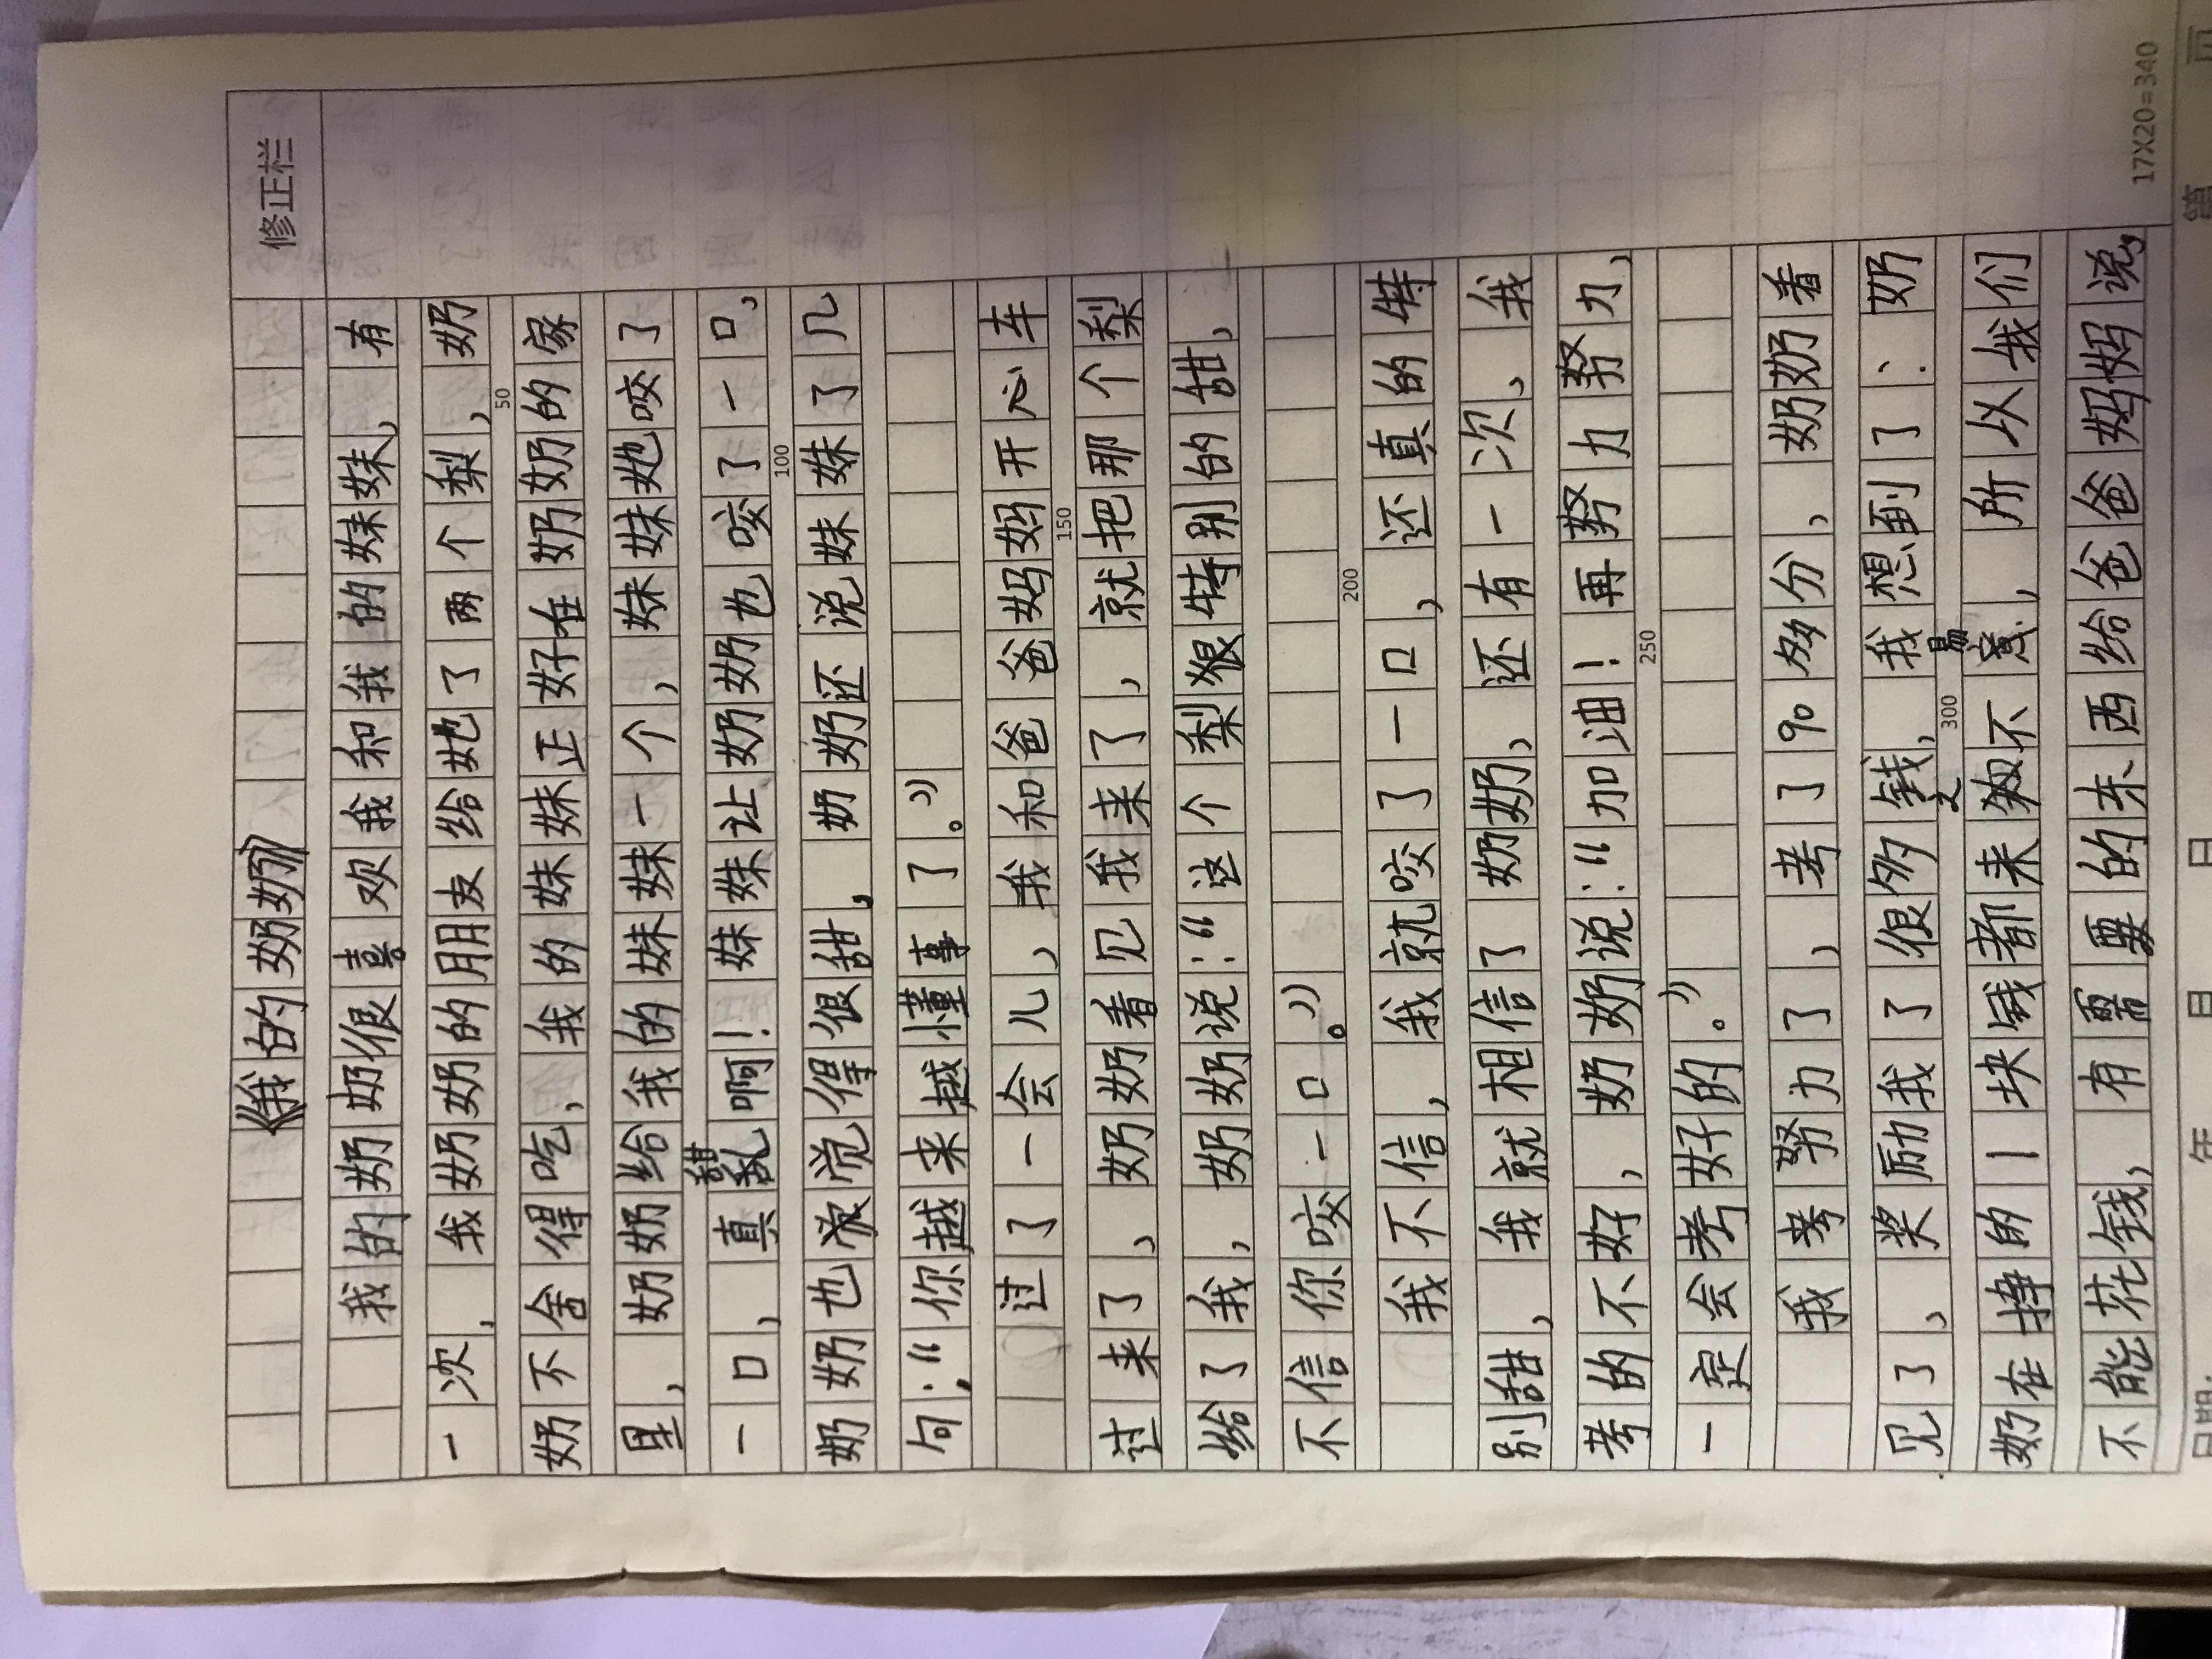 修正栏
《我的奶奶》
我的奶奶很喜欢我和我的妹妹，有
一次，我奶奶的朋友给她了两个梨，奶
50
奶不舍得吃，我的妹妹正好在奶奶的家
里，奶奶给我的妹妹一个，妹妹她咬了
甜
一口，真乱啊！妹妹让奶奶也咬了一口，
100
奶奶也觉觉得很甜，奶奶还说妹妹了几
句：“你越来越懂事了。”
过了一会儿，我和爸爸妈妈开心车
150
过来了，奶奶看见我来了，就把那个梨
给了我，奶奶说：“这个梨狠特别的甜，
不信你咬一口。”
200
我不信，我就咬了一口，还真的特
别甜，我就相信了奶奶，还有一次，我
考的不好，奶奶说：“加油！再努力努力，
250
一定会考好的。”
我考努力了，考了90多分，奶奶看
见了，奖励我了很多钱，我想到了：奶
之 易 300
奶在挣的1块钱都来不意，所以我们
不能花钱，有需要的东西给爸爸妈妈说，
17X20=340
日期： 年 月 日 第 页